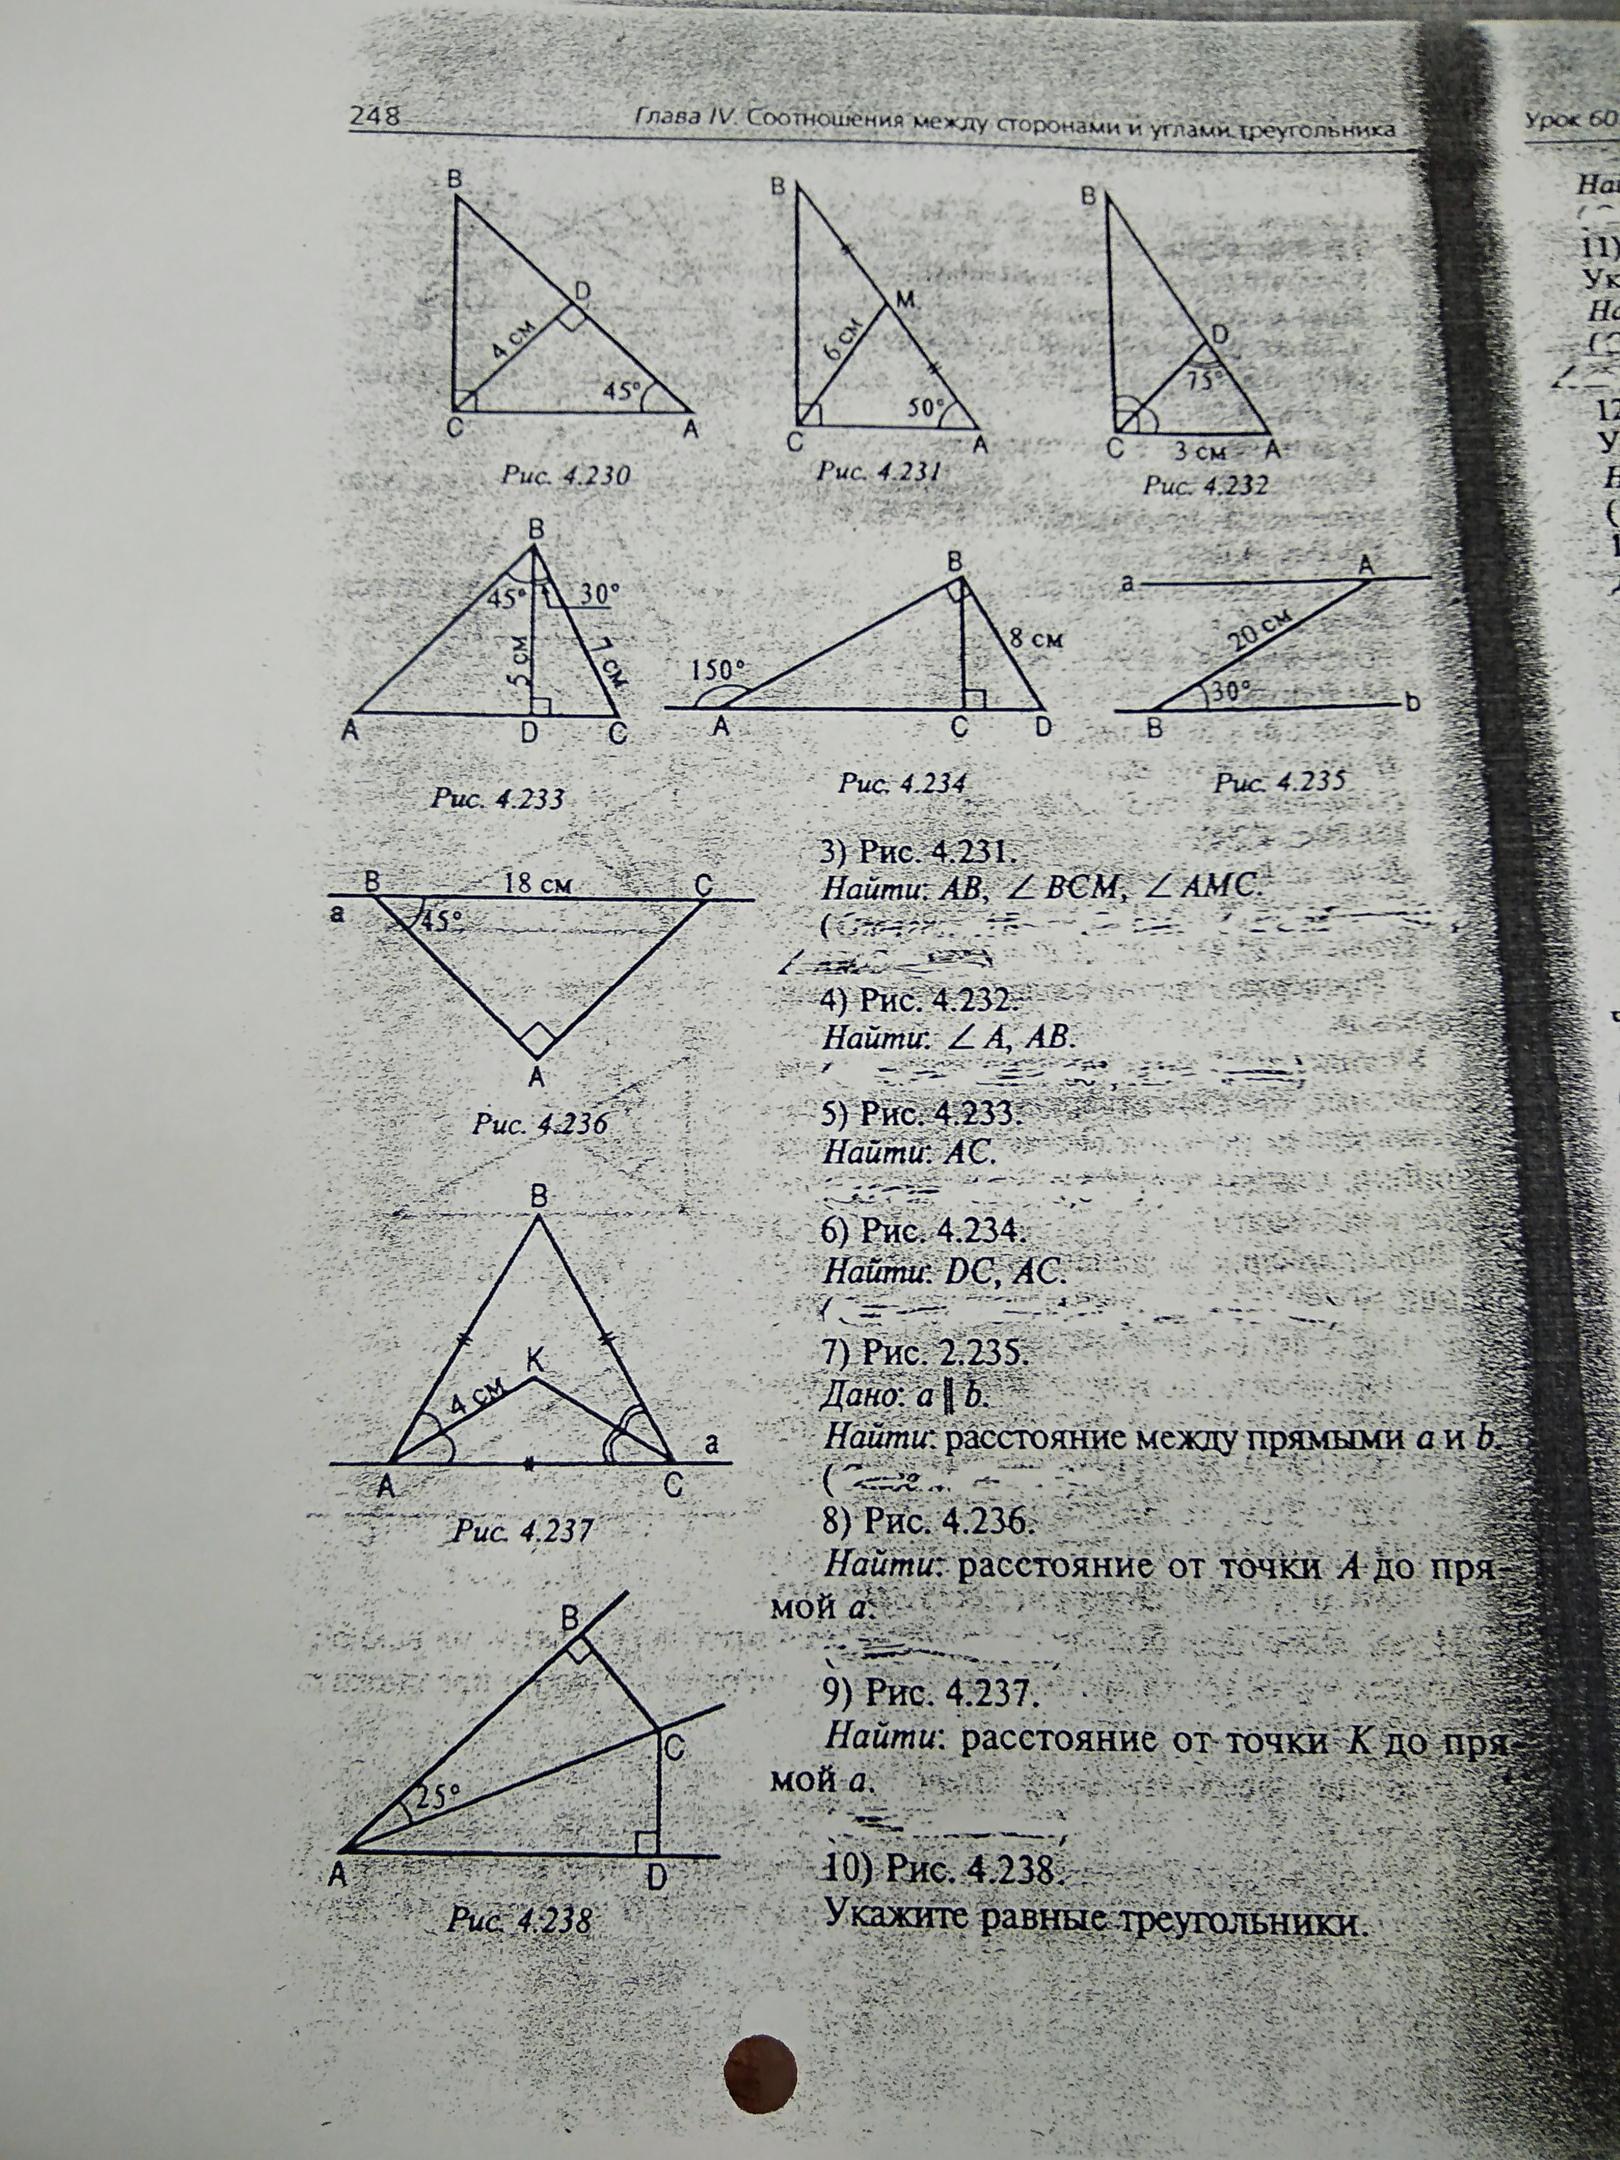 248
Глава IV. Соотношения между сторонами и углами треугольника
Урок 60
B
D
4 см
45°
C
A
Рис. 4.230
B
M
6 см
50°
C
A
Рис. 4.231
B
D
75°
C
3 см
A
Рис. 4.232
B
45°
30°
5 см
7 см
A
D
C
Рис. 4.233
B
8 см
150°
A
C
D
Рис. 4.234
a
A
20 см
30°
B
b
Рис. 4.235
B
18 см
C
a
45°
A
Рис. 4.236
B
K
4 см
a
A
C
Рис. 4.237
B
C
25°
A
D
Рис. 4.238
3) Рис. 4.231.
Найти: AB, ∠ BCM, ∠ AMC.
4) Рис. 4.232.
Найти: ∠ A, AB.
5) Рис. 4.233.
Найти: AC.
6) Рис. 4.234.
Найти: DC, AC.
7) Рис. 2.235.
Дано: a ∥ b.
Найти: расстояние между прямыми a и b.
8) Рис. 4.236.
Найти: расстояние от точки A до пря-
мой a.
9) Рис. 4.237.
Найти: расстояние от точки K до пря-
мой a.
10) Рис. 4.238.
Укажите равные треугольники.
11)
Ук